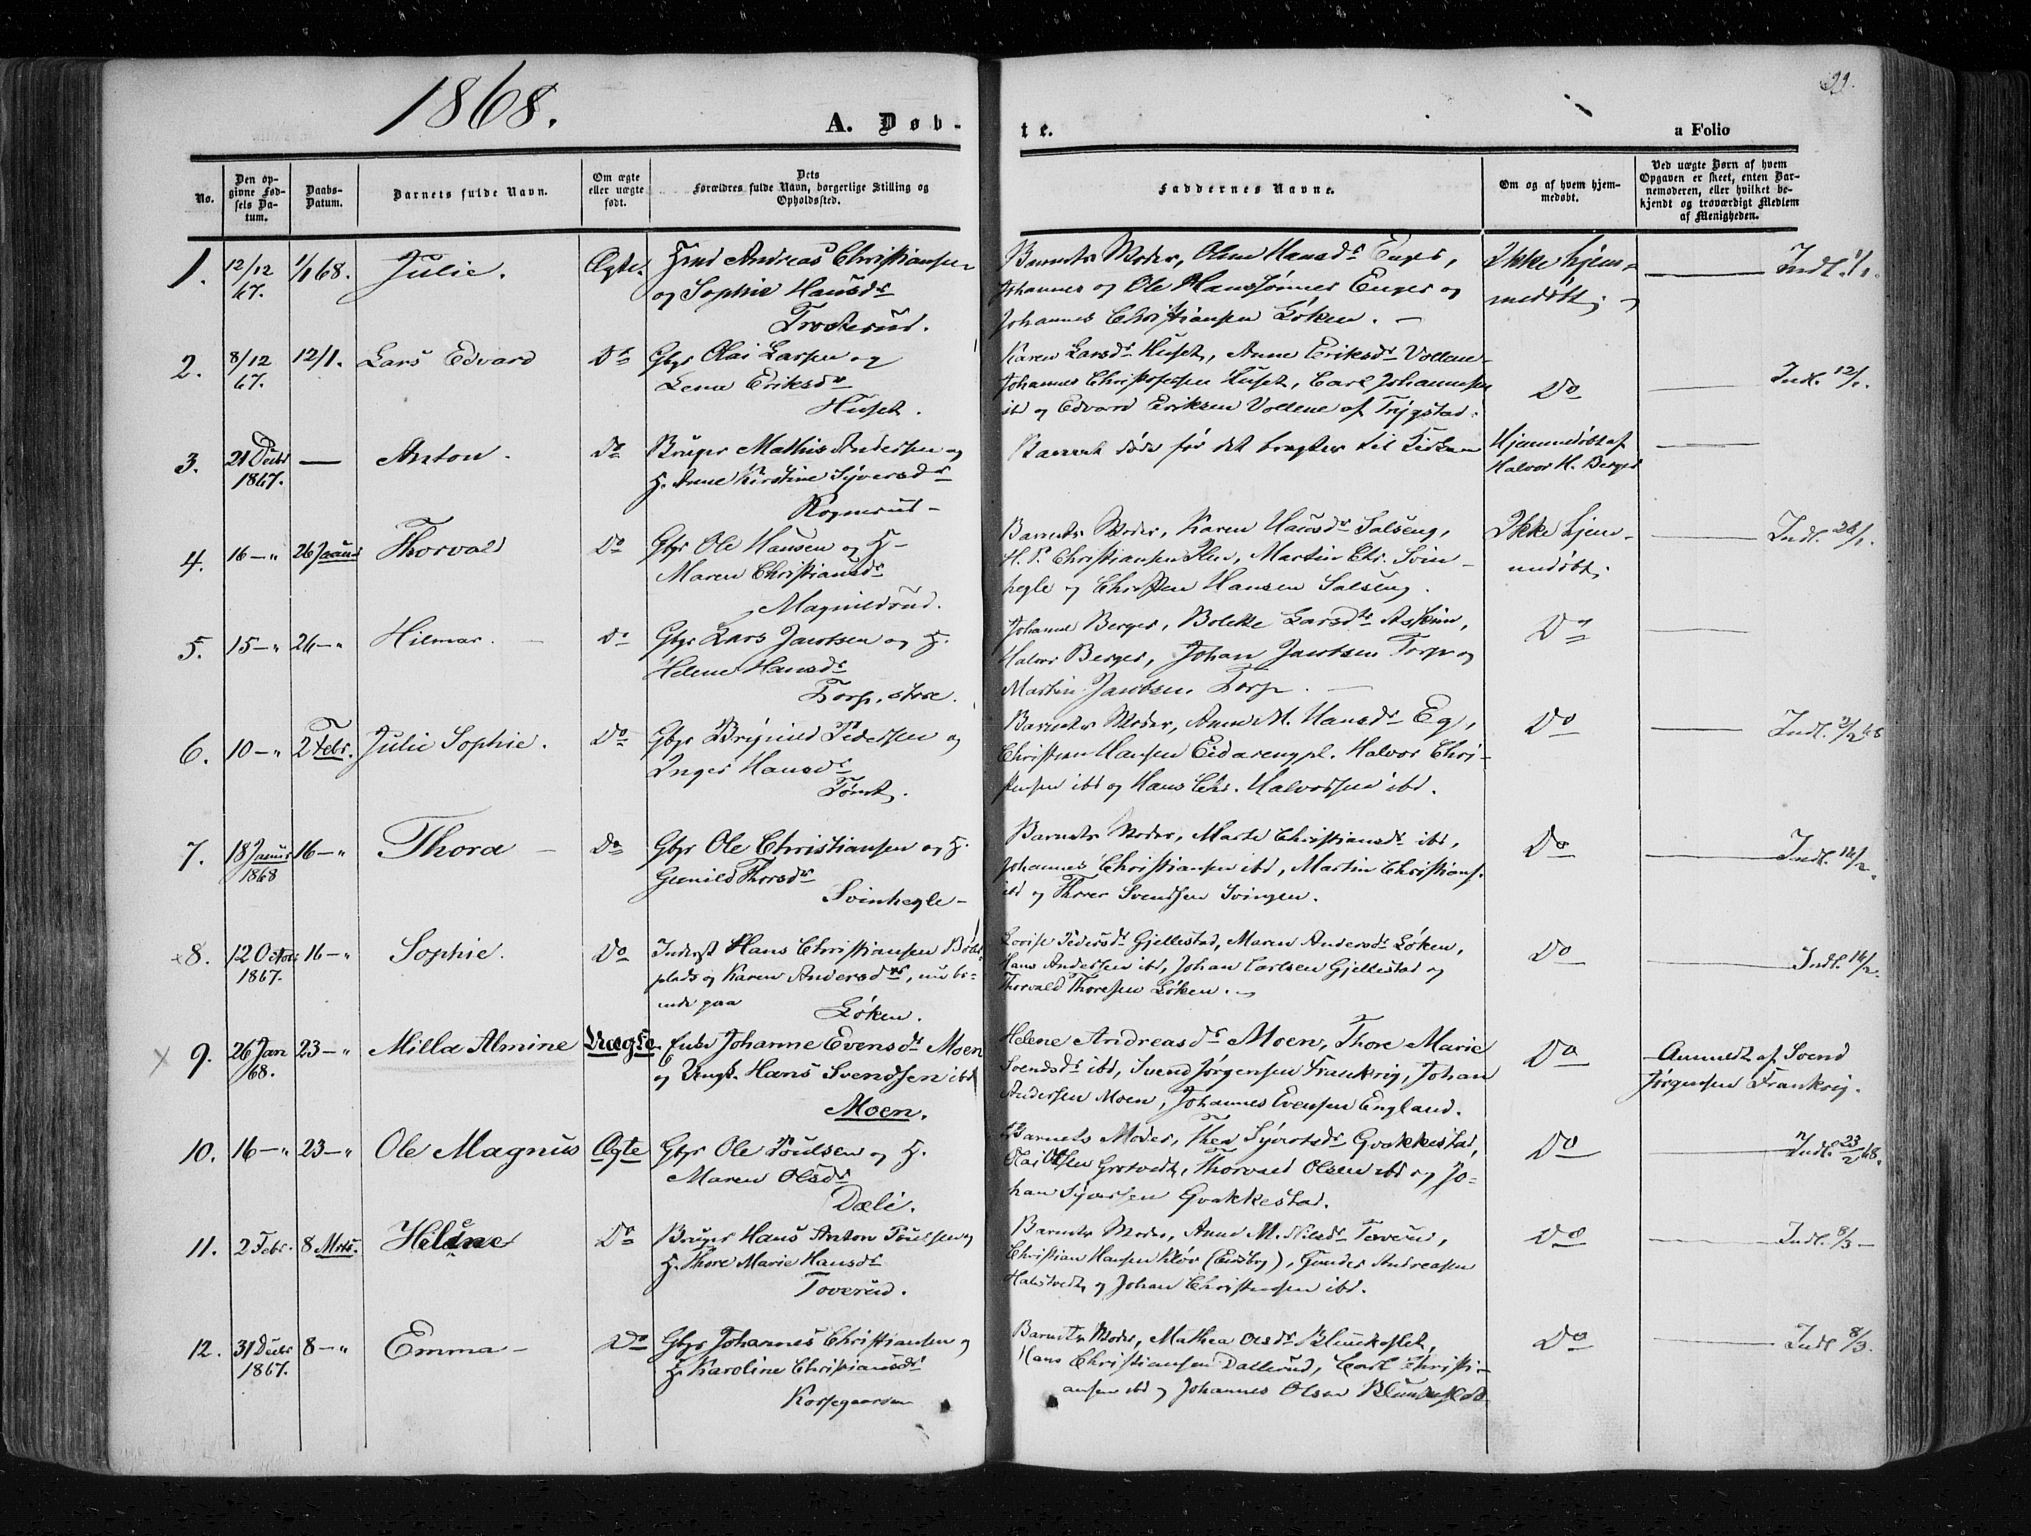 1868.
99.
A. Døb-
te.
a Folio
No.
Den op-
givne Fød-
sels Da-
tum.
Daabs-
Datum.
Barnets fulde Navn.
Om ægte
eller uægte
født.
Dets
Forældres fulde Navn, borgerlige Stilling og
Opholdssted.
Faddernes Navne.
Om og af hvem hjem-
medøbt.
Ved uægte Børn af hvem
Opgaven er skeet, enten Bar-
nemoderen, eller hvilket be-
kjendt og troværdigt Medlem
af Menigheden.
1. 12/12 67. 1/1 68. Julie. Ægte.
Andreas Christiansen
og Sophie Hansdr
Barnets Moder, Hansdr Enger,
Johannes og Ole Hanssønner Enger og
Johannes Christiansen Löken. —
Ikke hjem-
medöbt;
Indl. 1/1.
2. 8/12 67. 12/1. Lars Edvard Do
Gbr Olai Larsen og
Lena Eriksdr
Huset.
Karen Larsdr Huset, Anne Eriksdr Vollene
Johannes Christophersen Huset, Carl Johannesen
ibd og Edvard Eriksen Vollene af Trygstad.
Do
Indl. 12/1.
3. 21 Decbr 1867. — Anton. Do
Bruger Mathis Andersen og
H. Anne Kirstine Syversdr
Barnet döde för det bragtes til Kirken
Hjemmedöbt af
Halvor H. Berger
4. 16 — " 26 Januar Thorvald Do
Gbr Ole Hansen og H—
Maren Christiansdr
Magnildrud.
Barnets Moder, Karen Hansdr Salseng,
H. P. Christiansen Martin Chr. Svin-
hegle og Christen Hansen Salseng.
Ikke hjem-
medöbt;
Indl. 26/1.
5. 15 — " 26 — " Hilmar. Do
Gbr Lars Jacobsen og H.
Helene Hansdr
Torp, store.
Johanne Berger, Bolette Larsdr Askim,
Halvor Berger, Johan Jacobsen Torp og
Martin Jacobsen Torp. —
Do
6. 10 — " 2 Febr. Julie Sophie. Do
Gbr Brynild Pedersen og
Inger Hansdr
Tömt.
Barnets Moder, Anne M. Hansdr Eg,
Christian Hansen Halvor Chri-
stensen ibd og Hans Chr. Halvorsen ibd.
Do
Indl. 2/2 68
7. 18 Januar 1868 16 — " Thora — Do
Gbr Ole Christiansen og H.
Gunild Thorsdr
Svinhegle —
Barnets Moder, Marte Christiansdr ibd,
Johannes Christiansen ibd, Martin Christians.
ibd og Thorer Svendsen Svingen.
Do
Indl. 16/2.
x 8. 12 October 1867. 16 — " Sophie. Do
Inderst Hans Christiansen
plads og Karen Andersdr, nu bo-
ende paa
Löken.
Lovise Pedersdr Gjellestad, Maren Andersdr Löken,
Hans Andersen ibd, Johan Carlsen Gjellestad og
Thorvald Thoresen Löken. —
Do
Indl. 16/2.
x 9. 26 Jan 68. 23 — " Milla Almine Uægte.
Enke Johanne Evensdr Moen
og Ungk. Hans Svendsen ibd
Moen.
Helene Andreasdr Moen, Thore Marie
Svendsdr ibd, Svend Jørgensen Frankrig, Johan
Andersen Moen, Johannes Evensen England.
Do
Anmeldt af Svend
Jørgensen Frankrig.
10. 16 — " 23 — " Ole Magnus Ægte
Gbr Ole Poulsen og H.
Maren Olsdr
Dæli.
Barnets Moder, Thea Syversdr Gvakkestad,
Olai Olsen Grotvedt, Thorvald Olsen ibd og Jo-
han Syversen Gvakkestad.
Do
Indl. 23/2 68.
11. 2 Febr. 8 Mrts. Helene Do
Bruger Hans Anton Poulsen og
H. Thore Marie Hansdr
Toverud.
Barnets Moder, Anne M. Nilsdr Toverud,
Christian Hansen Klör (Eidsberg), Gunder Andreasen
Halstvedt og Johan Christensen ibd.
Do
Indl. 8/3 —
12. 31 Decbr 1867. 8 — " Emma — Do
Gbr Johannes Christiansen og
H. Karoline Christiansdr
Korsegaarden
Barnets Moder, Mathea Olsdr
Hans Christiansen Dallerud, Carl Christi-
ansen ibd og Johannes Olsen
Do
Indl 8/3.